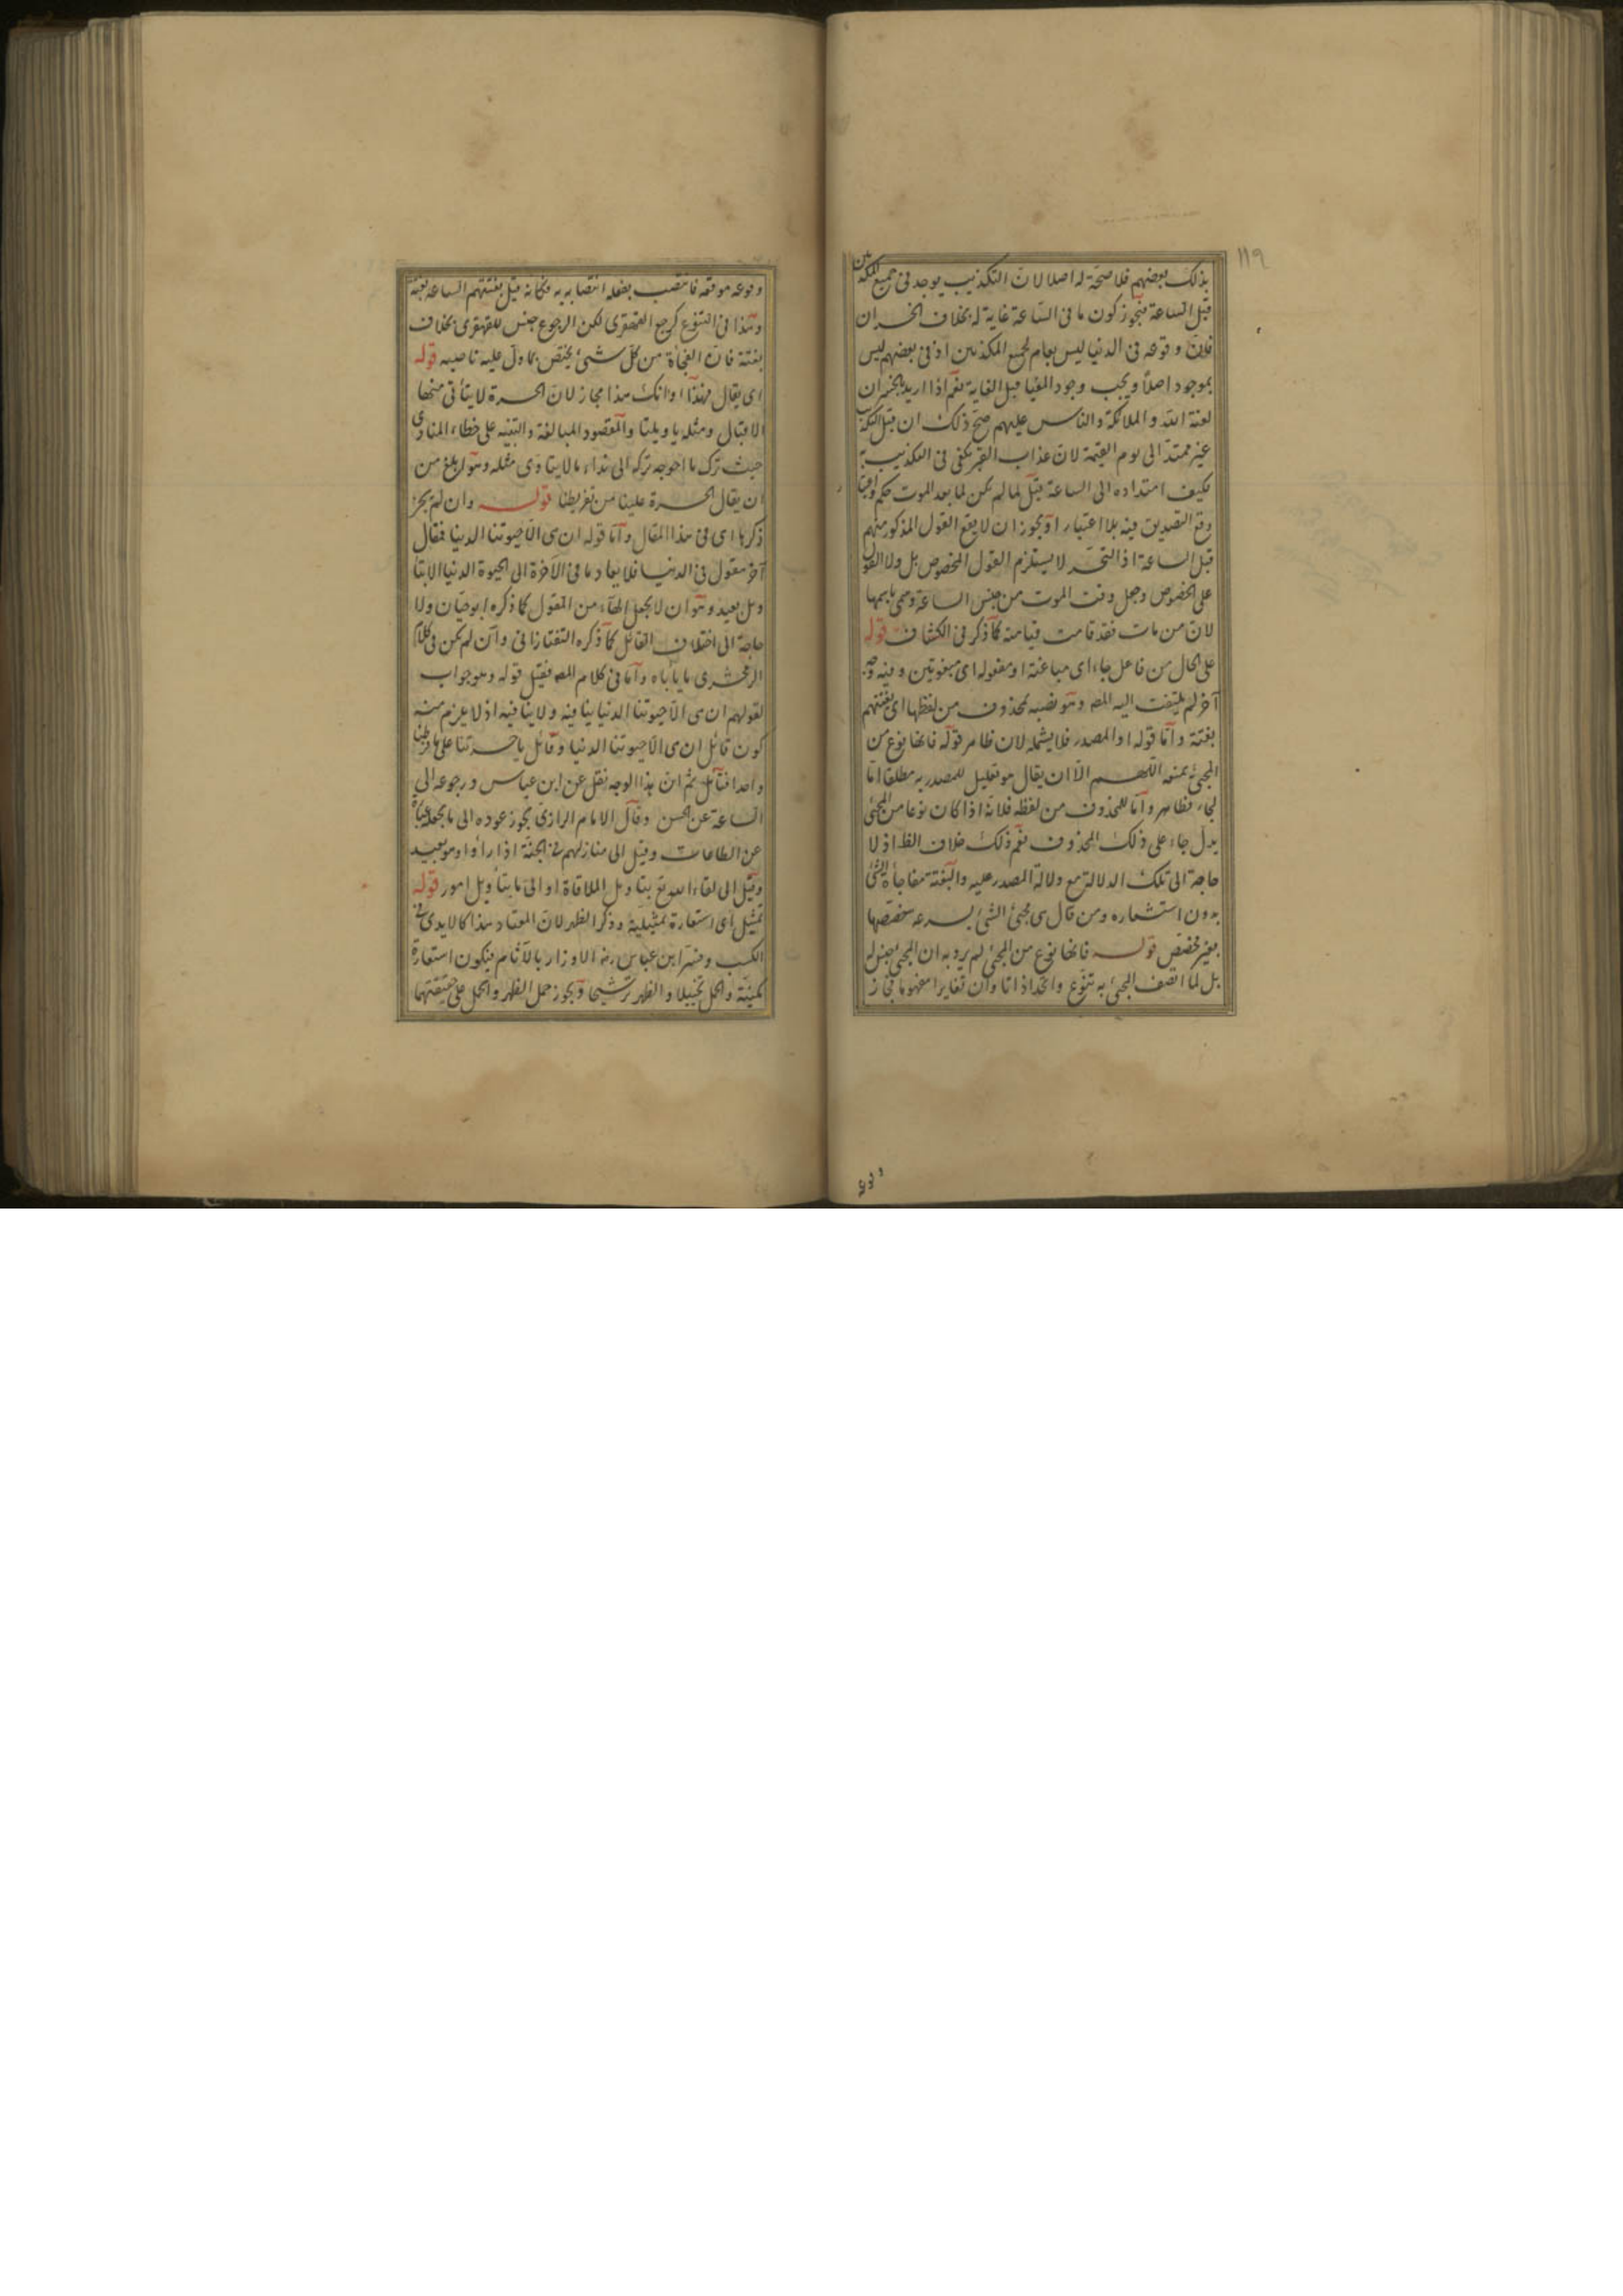 ١١٩
بذلك بعضهم فلا صحة له اصلا لان التكذيب يوجد فى جميع المكذبين
قبل الساعة فيجوز كون ما فى الساعة غاية له بخلاف الخسران
فلان وقوعه فى الدنيا ليس بعام لجميع المكذبين اذ فى بعضهم ليس
بموجود اصلا ويجب وجود المغيا قبل الغاية نعم اذا اريد بالخسران
لعنة الله والملائكة والناس عليهم صح ذلك ان قيل التكذيب
غير ممتد الى يوم القيمة لان عذاب القبر يكفى فى التكذيب به
فكيف امتداده الى الساعة قيل لما لم يكن لما بعد الموت حكم
وقع التصديق فيه بلا اعتبار او يجوز ان لا يقع القول المذكور منهم
قبل الساعة اذ التحسر لا يستلزم القول المخصوص بل ولا القول
على الخصوص وجعل وقت الموت من جنس الساعة وسمى باسمها
لان من مات فقد قامت قيامته كما ذكر فى الكشاف قوله
على الحال من فاعل جاء اى مباغتة او مفعوله اى مبغوتين وفيه وجه
آخر لم يلتفت اليه المص وهو نصبه بمحذوف من لفظها اى بغتتهم
بغتة واما قوله او المصدر فلا يشمله لان ظاهر قوله فانها نوع من
المجئ يمنعه اللهم الا ان يقال هو تعليل للمصدرية مطلقا اما
لجاء فظاهر واما للمحذوف من لفظه فلانه اذا كان نوعا من المجئ
يدل جاء على ذلك المحذوف نعم ذلك خلاف الظ اذ لا
حاجة الى تلك الدلالة مع دلالة المصدر عليه والبغتة مفاجأة الشئ
بدون استشعاره ومن قال هى مجئ الشئ بسرعة خصصها
بغير مخصص قوله فانها نوع من المجئ لم يرد به ان المجئ جنس له
بل لما اتصف المجئ به تنوع واتحدا ذاتا وان تغايرا مفهوما فجاز
وقوعه موقعه فانتصب بفعله انتصابه به فكانه قيل بغتتهم الساعة بغتة
وهذا فى التنوع كرجع القهقرى لكن الرجوع جنس للقهقرى بخلاف
بغتة فان الفجأة من كل شئ يختص بما دل عليه ناصبه قوله
اى يقال فهذا اوانك هذا مجاز لان الحسرة لا يتأتى منها
الاقبال ومثله يا ويلتا والمقصود المبالغة والتنبيه على خطاء المنادى
حيث ترك ما احوجه تركه الى نداء ما لا ينادى مثله وهو ابلغ من
ان يقال الحسرة علينا من تفريطنا قوله وان لم يجر
ذكرها اى فى هذا المقال واما قوله ان هى الا حيوتنا الدنيا فمقال
آخر مقول فى الدنيا فلا يعاد ما فى الآخرة الى الحيوة الدنيا الا
بتأويل بعيد وهو ان لا يجعل الهاء من المقول كما ذكره ابو حيان ولا
حاجة الى اختلاف القائل كما ذكره التفتازانى وان لم يكن فى كلام
الزمخشرى ما يأباه واما فى كلام المص فقيل قوله وهو جواب
لقولهم ان هى الا حيوتنا الدنيا ينافيه ولا ينافيه اذ لا يلزم منه
كون قائل ان هى الا حيوتنا الدنيا وقائل يا حسرتنا على ما فرطنا
واحدا فتأمل ثم ان هذا الوجه نقل عن ابن عباس ورجوعه الى
الساعة عن الحسن وقال الامام الرازى يجوز عوده الى ما
عن الطاعات وقيل الى منازلهم فى الجنة اذا راوا وهو بعيد
وقيل الى لقاء الله تع بتأويل الملاقاة او الى ما بتأويل امور قوله
تمثيل اى استعارة تمثيلية وذكر الظهر لان المعتاد هذا كالايدى فى
الكسب وفسر ابن عباس رضه الاوزار بالآثام فيكون استعارة
مكنية والحمل تخييلا والظهر ترشيحا ويجوز حمل الظهر والحمل على حقيقتهما